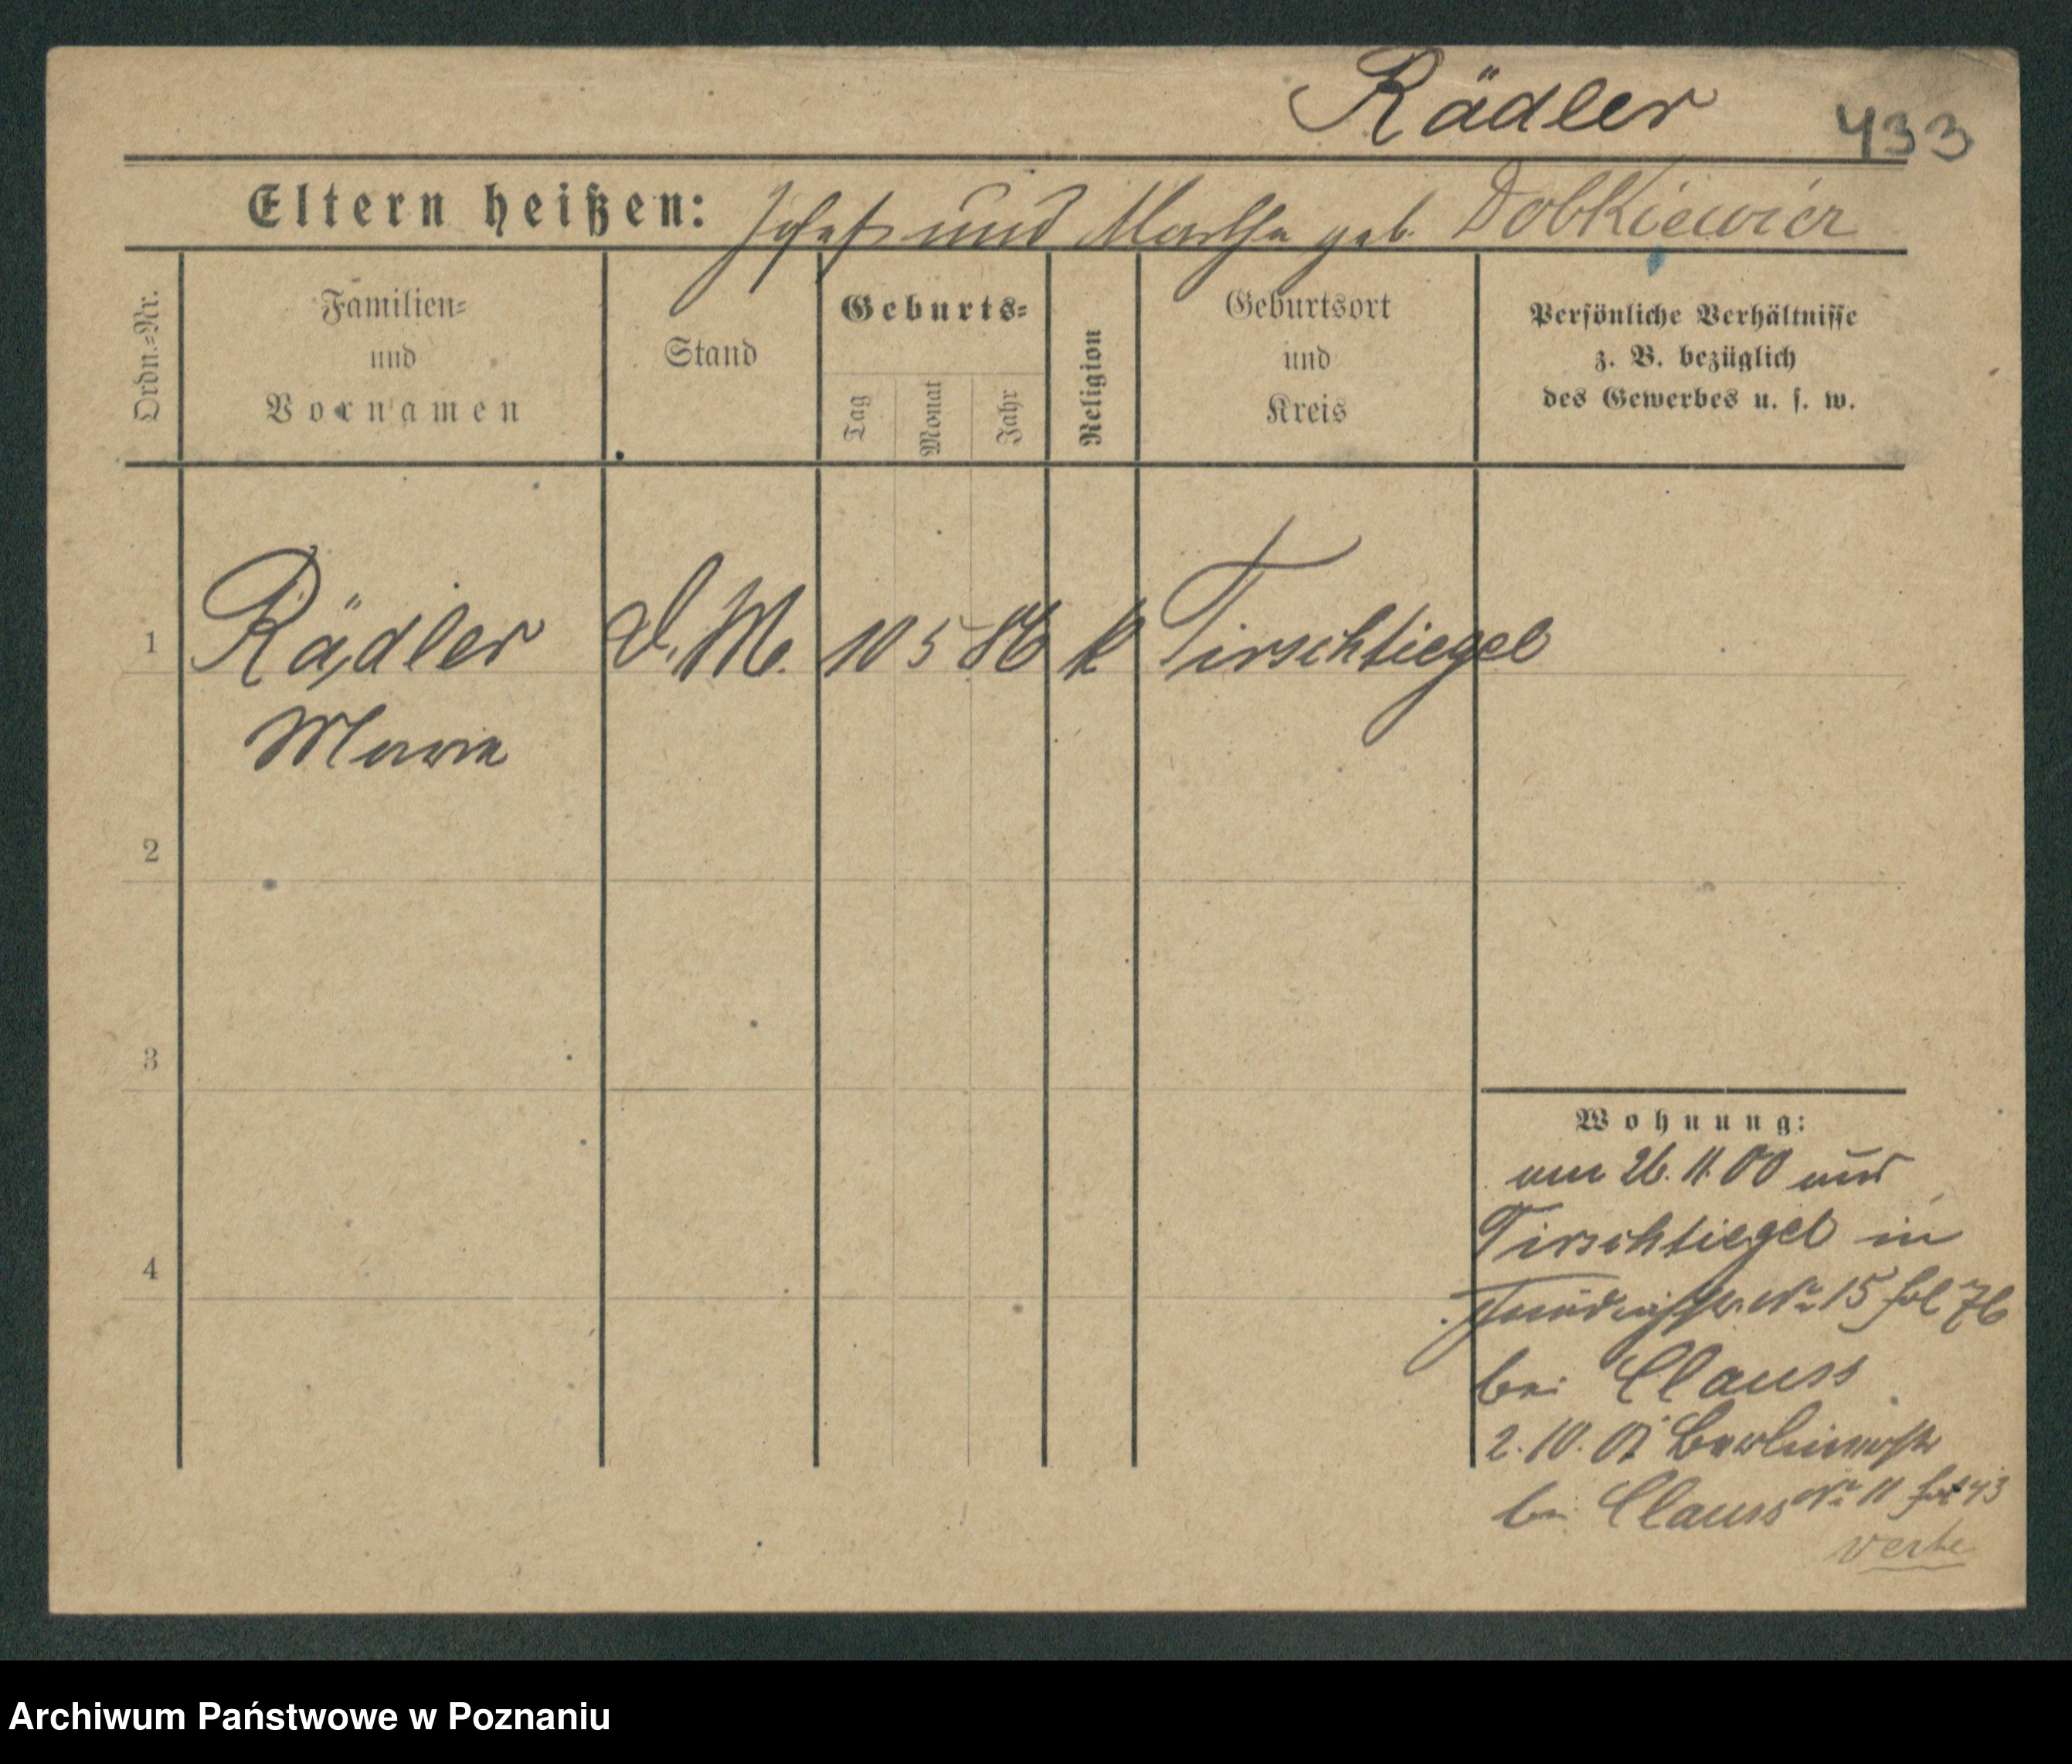 Rädler 433
Eltern heißen: Josef und Martha geb. Dobkiewicz
Ordn.-Nr.
Familien-
und
Vornamen
Stand
Geburts-
Tag
Monat
Jahr
Religion
Geburtsort
und
Kreis
Persönliche Verhältnisse
z. B. bezüglich
des Gewerbes u. s. w.
1 Rädler D. M. 10 5 86 k Tirschtiegel
Maria
2
3
4
Wohnung:
am 26.11.00 aus
Tirschtiegel in
No 15 fol 76
bei Clauss
2.10.01 Berlinerstr
bei Clauss No 11 fol 43
verte
Archiwum Państwowe w Poznaniu